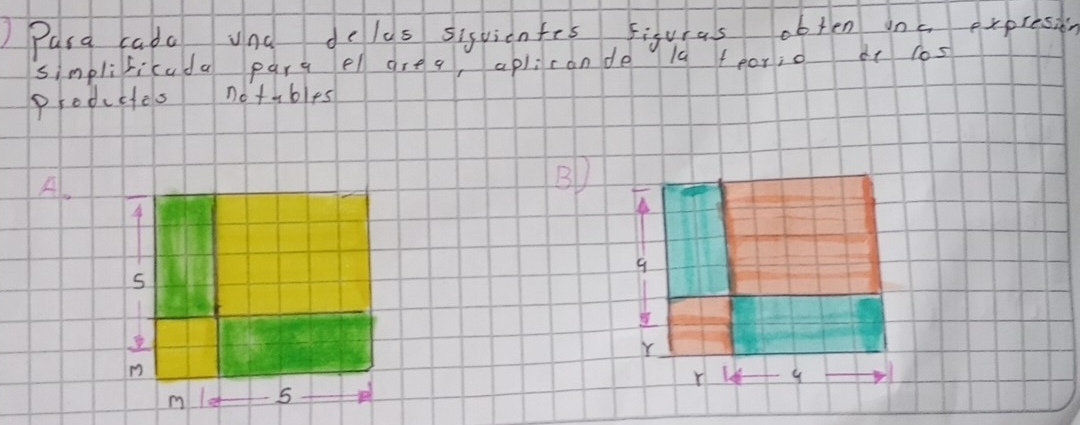 ) Para cada una de las siguientes figuras obten una expresión
simplificada para el area, aplicando la teoria de los
productos notables
A.
B)
5
4
m
r
m 5
r 4